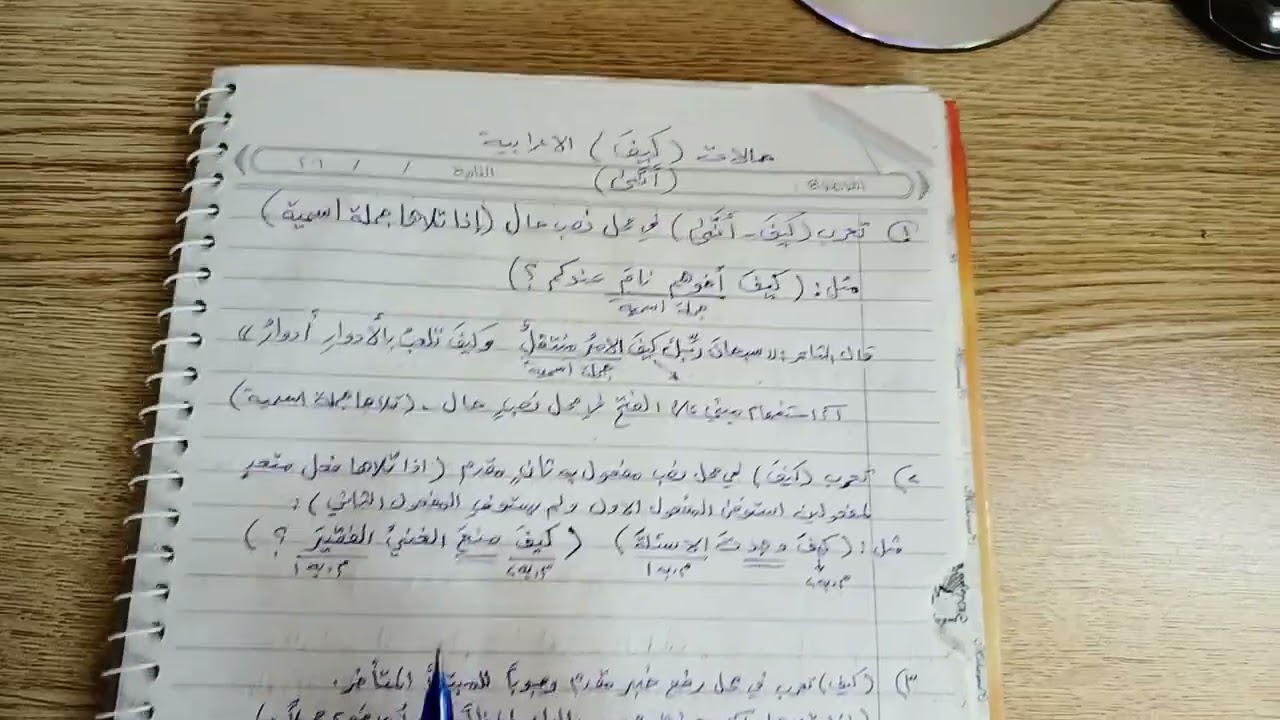 حالات (كيفَ) الاعرابية
(أنّى)
التاريخ / / ٢٠١
١) تعرب (كيفَ - أنّى) في محل نصب حال (إذا تلاها جملة اسمية)
مثل: (كيفَ أخوهم نامَ عندكم ؟)
جملة اسمية
قال الشاعر: «سبحانَ ربِّكَ كيفَ الامرُ منتقلٌ وكيفَ تلعبُ بالأدوارِ أدوارُ»
جملة اسمية
استفهام مبني على الفتح في محل نصب حال - (تلاها جملة اسمية)
٢) تعرب (كيفَ) في محل نصب مفعول به ثانٍ مقدم (اذا تلاها فعل متعدٍ
لمفعولين استوفى المفعول الاول ولم يستوفِ المفعول الثاني):
مثل: (كيفَ وجدتَ الاسئلةَ) (كيفَ منحَ الغنيُّ الفقيرَ ؟)
م.به٢ م.به١ م.به٢ م.به١
٣) (كيفَ) تعرب في محل رفع خبر مقدم وجوباً للمبتدأ المتأخر.